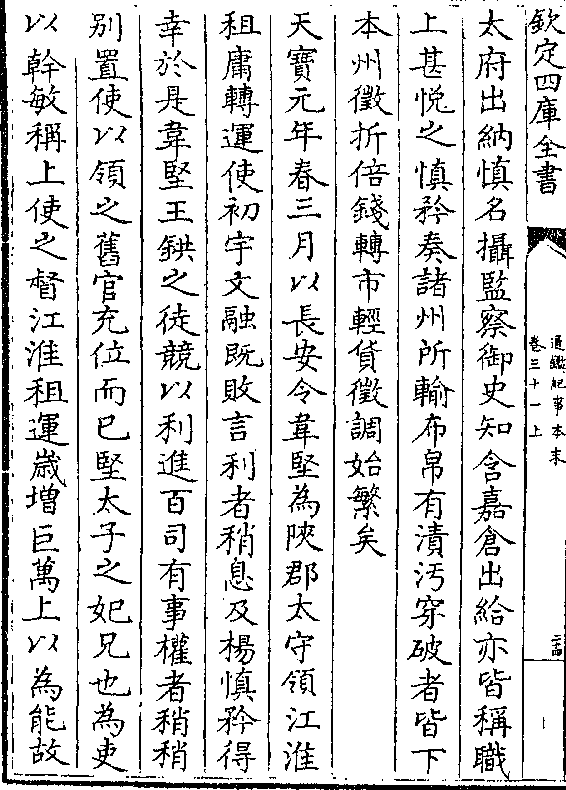 欽定四庫全書
通鑑紀事本末
卷三十一上
二十四
太府出納慎名攝監察御史知含嘉倉出給亦皆稱職
上甚悦之慎矜奏諸州所輸布帛有漬汚穿破者皆下
本州徵折佸錢轉市輕貨徵調始繁矣
天寳元年春三月以長安令韋堅為陜郡太守領江淮
租庸轉運使初宇文融既敗言利者稍息及楊慎矜得
幸於是韋堅王鉷之徒競以利進百司有事權者稍稍
别置使以領之舊官充位而已堅太子之妃兄也為吏
以幹敏稱上使之督江淮租運歲增巨萬上以為能故